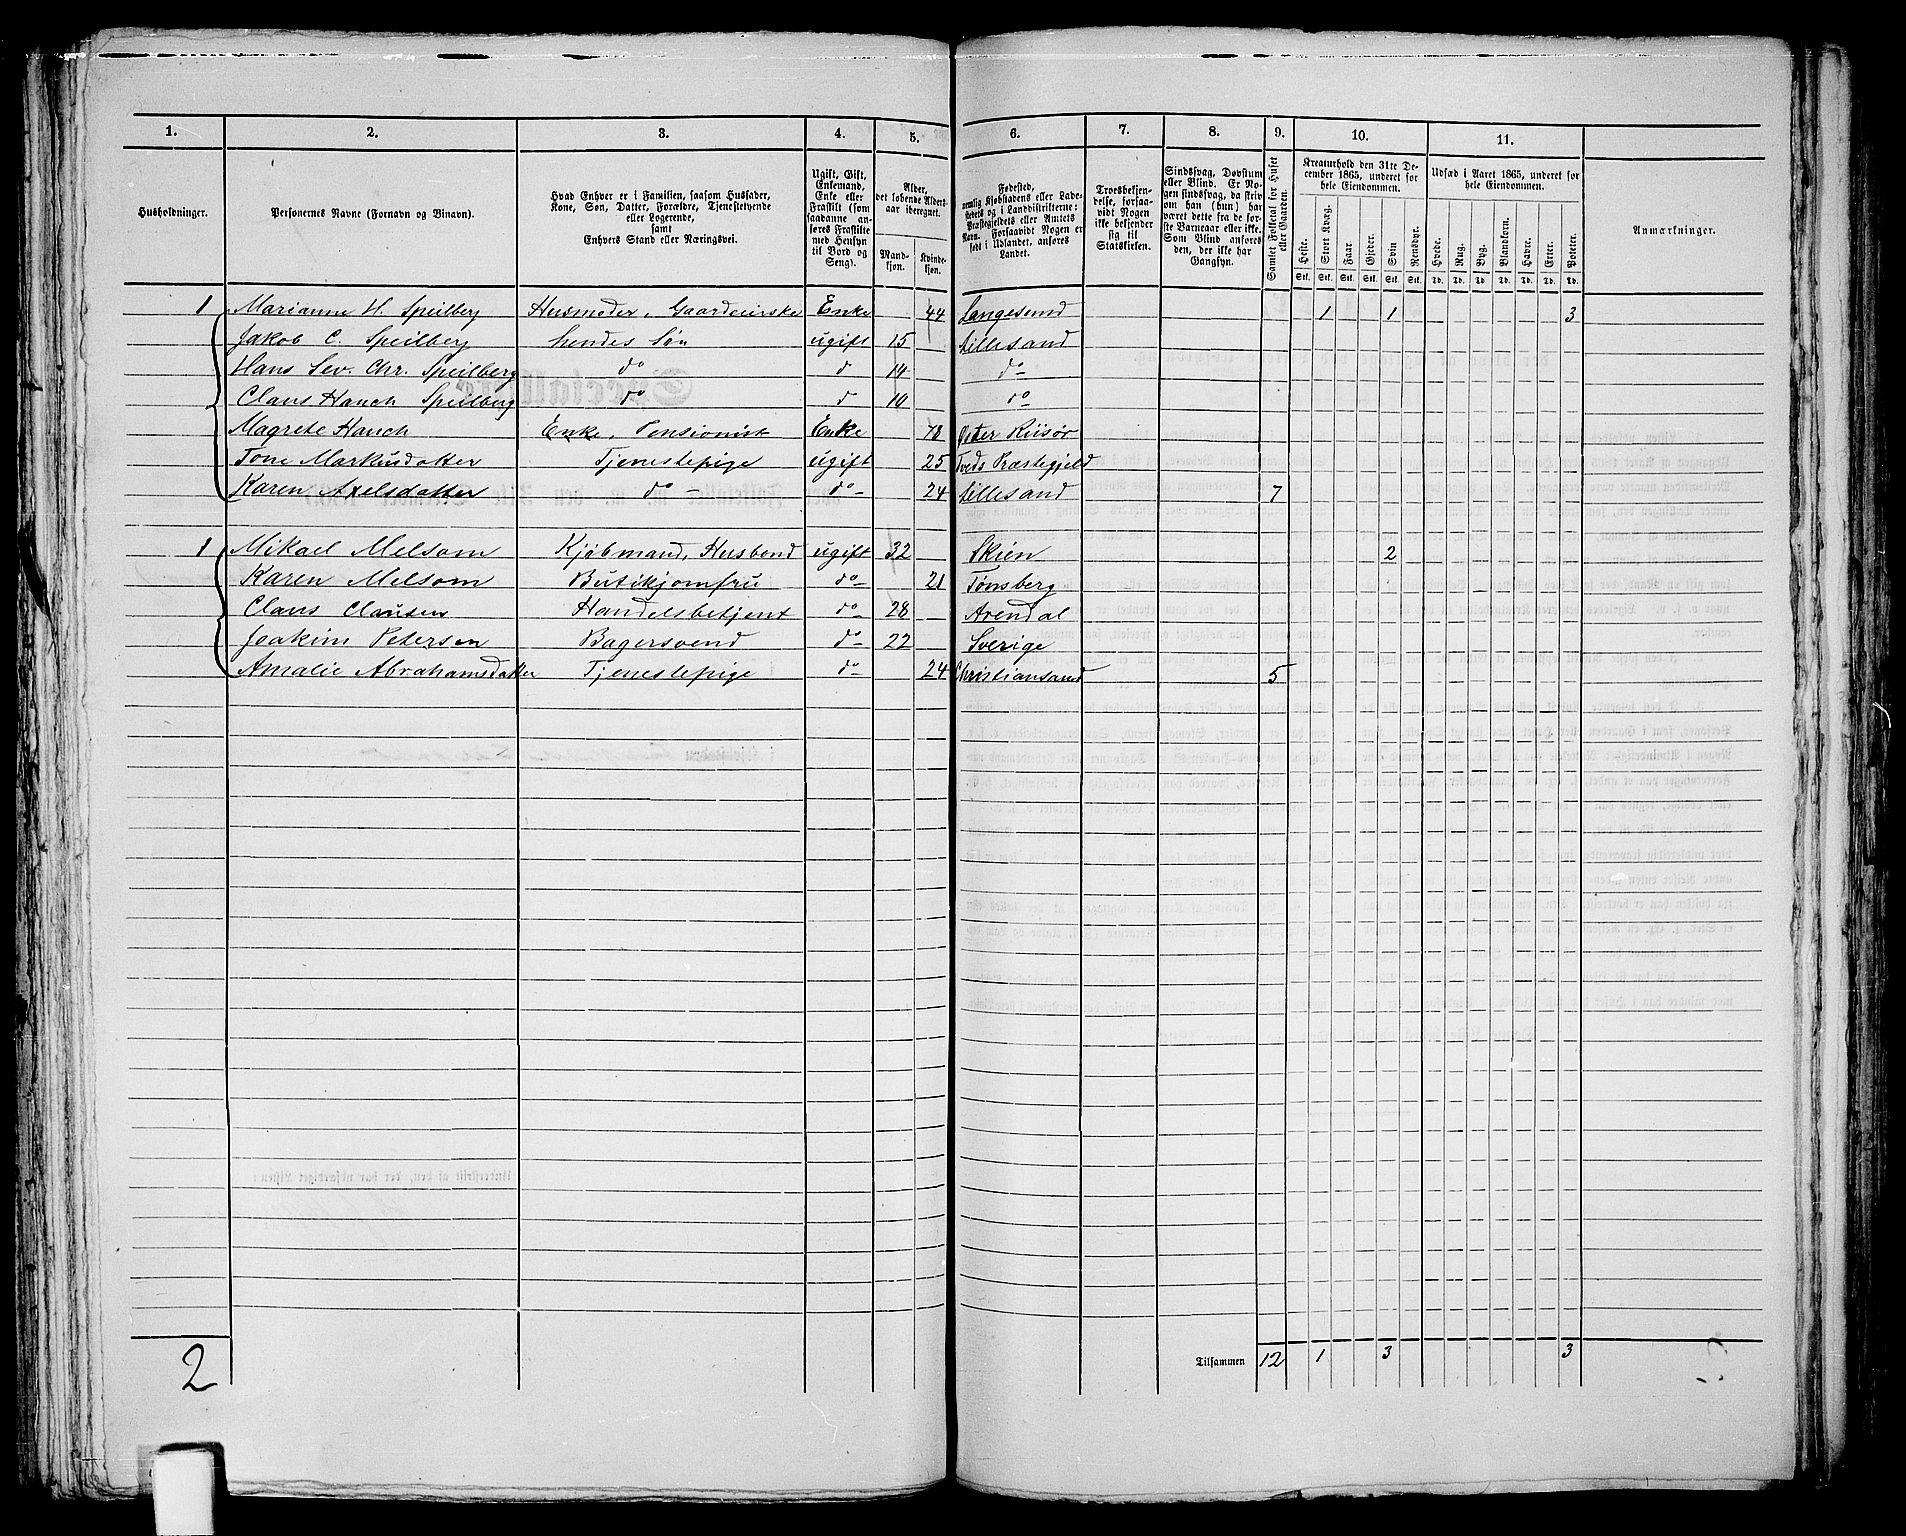 1. 2. 3. 4. 5. 6. 7. 8. 9. 10. 11.
Husholdninger.
Personernes Navne (Fornavn og Binavn).
Hvad Enhver er i Familien, saasom Husfader,
Kone, Søn, Datter, Forældre, Tjenestetyende
eller Logerende,
samt
Enhvers Stand eller Næringsvei.
Ugift, Gift,
Enkemand,
Enke eller
Fraskilt (som
saadanne an-
føres Fraskilte
med Hensyn
til Bord og
Seng).
Alder,
det løbende Alders-
aar iberegnet.
Mand-
kjøn.
Kvinde-
kjøn.
Fødested,
nemlig Kjøbstadens eller Lade-
stedets og i Landdistrikterne:
Præstegjeldets eller Amtets
Navn. Forsaavidt Nogen er
født i Udlandet, anføres
Landet.
Troesbekjen-
delse, forsaa-
vidt Nogen
ikke bekjender
sig til
Statskirken.
Sindssvag, Døvstum
eller Blind. Er No-
gen sindssvag, da skriv
om han (hun) har
været dette fra de før-
ste Barneaar eller ikke.
Som Blind anføres
den, der ikke har
Gangsyn.
Samlet Folketal for Huset
eller Gaarden.
Kreaturhold den 31te De-
cember 1865, underet for
hele Eiendommen.
Heste. Stort Kvæg. Faar. Gjeder. Svin Rensdyr.
Stk. Stk. Stk. Stk. Stk. Stk.
Udsæd i Aaret 1865, underet for
hele Eiendommen.
Hvede. Rug. Byg. Blandkorn. Havre. Erter. Poteter.
Td. Td. Td Td. Td. Td. Td.
Anmærkninger.
1 Marianne H. Speilberg Husmoder, Gaardeierske Enke 44 Langesund 1 1 3
Jakob C. Speilberg hendes Søn ugift 15 Lillesand
Hans Sev. Chr. Speilberg do d 14 do
Claus Hauch Speilberg do d 10 do
Magrete Hauch Enke, Pensionist Enke 78 Øster Riisør
Tone Markusdatter Tjenestepige ugift 25 Tveds Præstegjeld
Karen Axelsdatter do do 24 Lillesand 7
1 Mikael Melsom Kjøbmand, Husbond ugift 32 Skien 2
Karen Melsom Butikjomfru do 21 Tønsberg
Claus Clausen Handelsbetjent do 28 Arendal
Joakim Petersen Bagersvend do 22 Sverige
Amalie Abrahamsdatter Tjenestepige do 24 Christiansand 5
2
Tilsammen 12 1 3 3